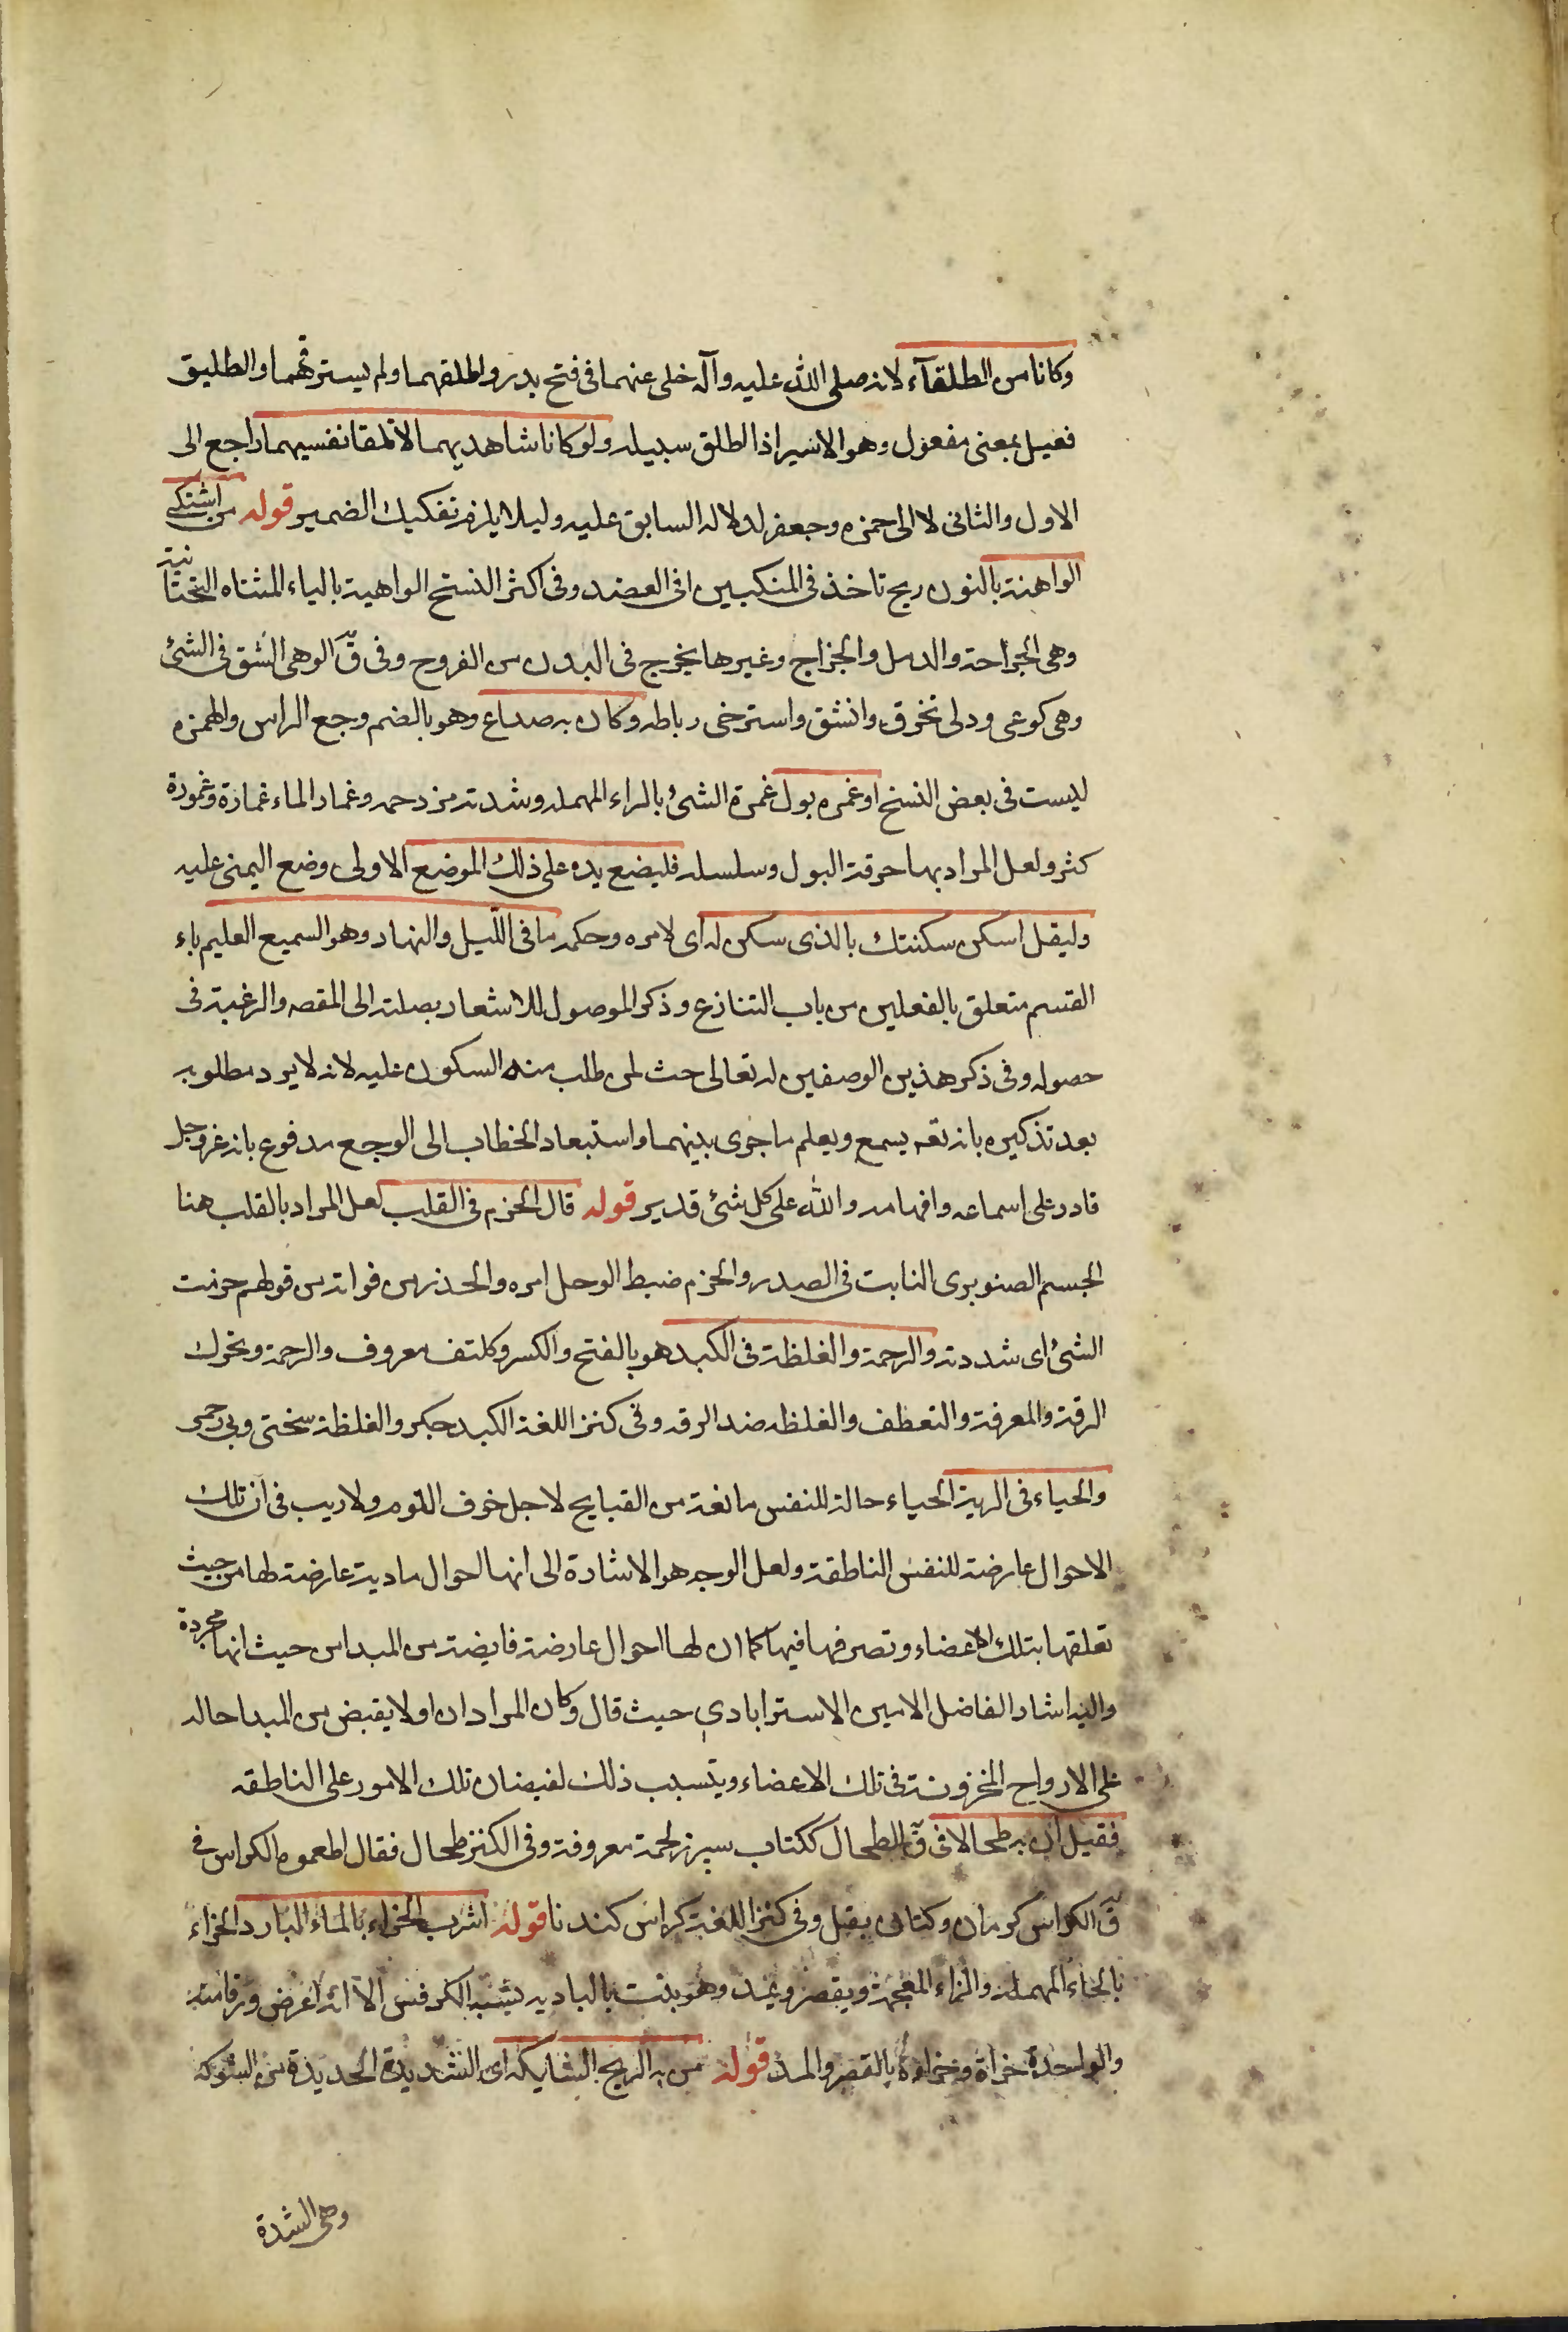 وكانا من الطلقآء لانه صلى الله عليه وآله خلى عنهما فى فتح بدر واطلقهما ولم يسترقهما والطليق
فعيل بمعنى مفعول وهو الاسير اذا اطلق سبيله ولو كانا شاهديهما لاتلفا نفسيهما راجع الى
الاول والثانى لا الى حمزه وجعفر لدلاله السابق عليه وليلا يلزم تفكيك الضمير قوله من اشتكى
الواهنة بالنون ريح تاخذ فى المنكبين او فى العضد وفى اكثر النسخ الواهية بالياء المثناه التحتانية
وهى الجراحة والدمل والخراج وغيرها يخرج فى البدن من القروح وفى ق الوهى الشق فى الشئ
وهى كوعى وولى تخرق وانشق واسترخى رباطه وكان به صداع وهو بالضم وجع الراس والهمزه
ليست فى بعض النسخ او غمره بول غمرة الشئ بالراء المهمله وشدته مزدحمه وغمار الماء غمارة وغمورة
كثر ولعل المراد بها حرقة البول وسلسله فليضع يده على ذلك الموضع الاولى وضع اليمنى عليه
وليقل اسكن سكنتك بالذى سكن له اى لامره وحكمه ما فى الليل والنهار وهو السميع العليم باء
القسم متعلق بالفعلين من باب التنازع وذكر الموصول للاشعار بصلته الى المقصه والرغبة فى
حصوله وفى ذكر هذين الوصفين له تعالى حث لمن طلب منه السكون عليه لانه لا يرد مطلوبه
بعد تذكيره بانه تعه يسمع ويعلم ما جرى بينهما واستبعاد الخطاب الى الوجع مدفوع بانه عزوجل
قادر على اسماعه وافهامه والله على كل شئ قدير قوله قال الحزم فى القلب لعل المراد بالقلب هنا
الجسم الصنوبرى النابت فى الصدر والحزم ضبط الرجل امره والحذر من فواته من قولهم حزمت
الشئ اى شددته والرحمة والغلظة فى الكبد هو بالفتح والكسر وككتف معروف والرحمة ويحرك
الرقة والمعرفة والتعطف والغلظه ضد الرقه وفى كنز اللغة الكبد جكر والغلظة سختى وبى رحمى
والحياء فى الرية الحياء حالة للنفس مانعة من القبايح لاجل خوف اللوم ولا ريب فى ان تلك
الاحوال عارضة للنفس الناطقة ولعل الوجه هو الاشارة الى انها احوال مادية عارضة لها من حيث
تعلقها بتلك الاعضاء وتصرفها فيها كما ان لها احوال عارضة فايضة من المبدا من حيث انها مجردة
واليه اشار الفاضل الامين الاسترابادي حيث قال وكان المراد ان اولا يقبض من المبدا حاله
على الارواح المخزونة فى تلك الاعضاء ويتسبب ذلك لفيضان تلك الامور على الناطقه
فقيل ان به طحالا فى ق الطحال ككتاب سپرز لحمة معروفة وفى الكنز طحال فقال اطعموه الكراس فى
ق الكراس كرمان وكتان بقل وفى كنز اللغة كراس كندنا قوله اشرب الحزاء بالماء البارد الحزاء
بالحاء المهملة والزاء المعجمة ويقصر ويمد وهو بنت بالبادية يشبه الكرفس الا انه اعرض ورقا منه
والواحدة حزاة وحزاءة بالقصر والمد قوله من به الريح الشابكه اى الشديدة الحديدة من الشوكه
وهى الشدة